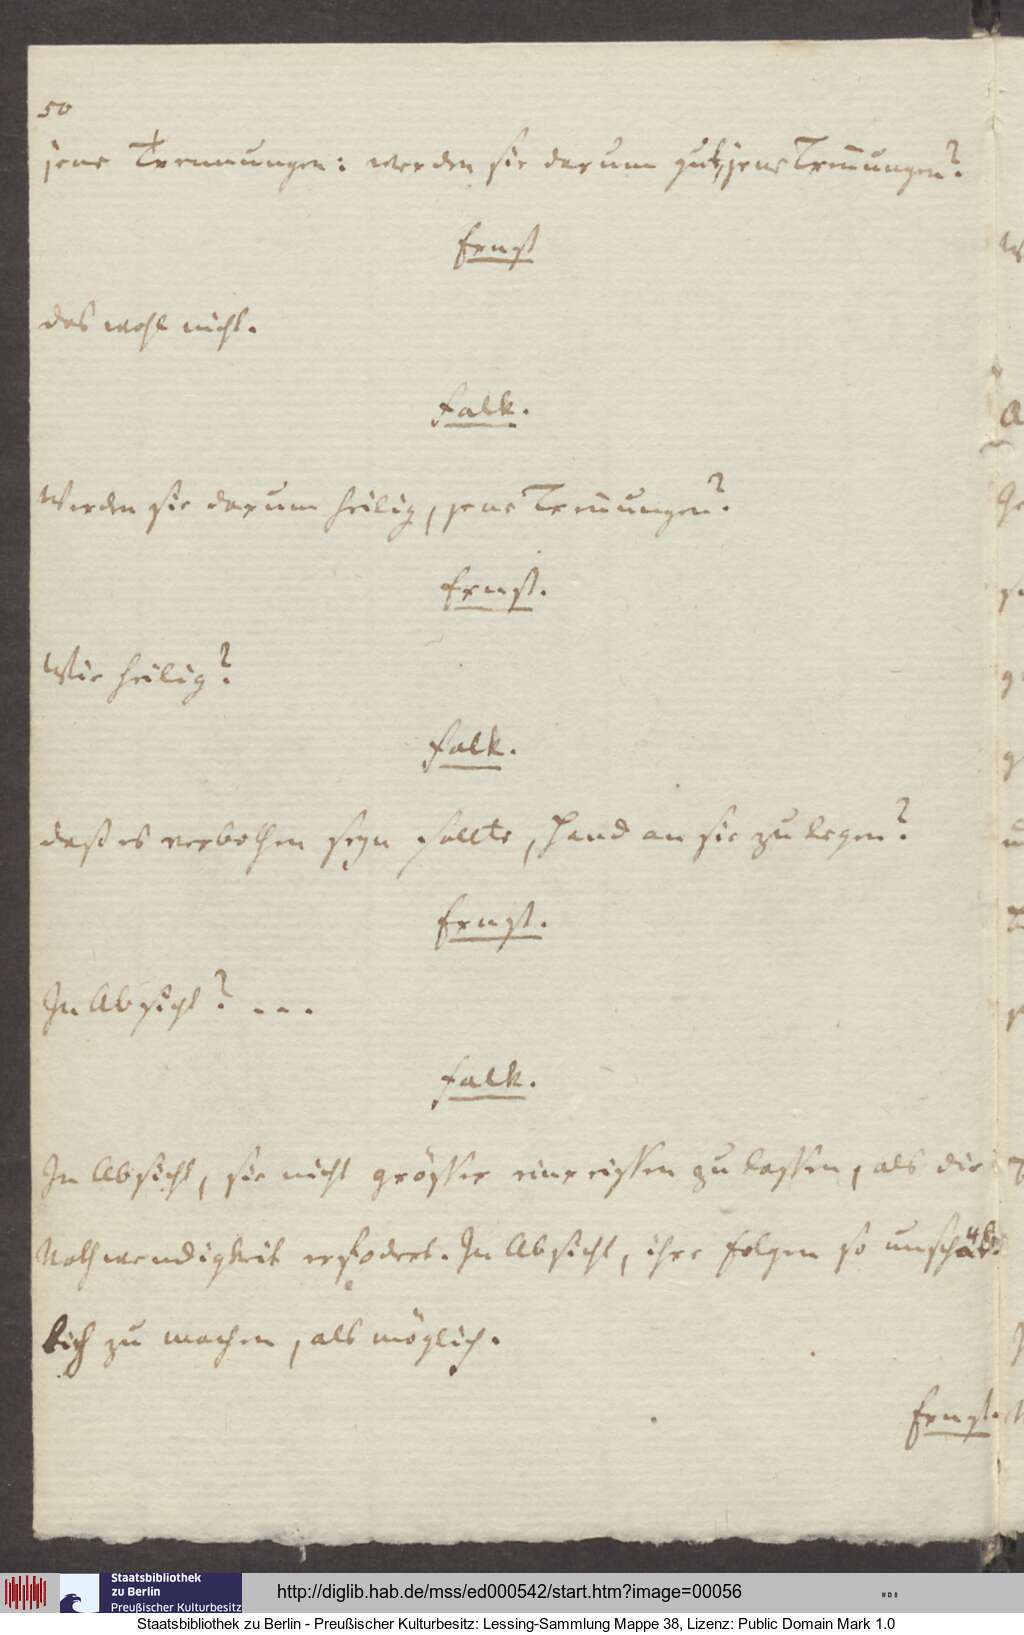 50
jene Trennungen: werden sie darum gut, jene Treñungen?
Ernst
das wohl nicht.
Falk.
Werden sie darum heilig, jene Treñungen?
Ernst.
Wie heilig?
Falk.
daß es verbothen seyn sollte, Hand an sie zu legen?
Ernst.
In Absicht? ---
Falk.
In Absicht, sie nicht grösser einreissen zu lassen, als die
Nothwendigkeit erfodert. In Absicht, ihre Folgen so unschäd-
lich zu machen, als möglich.
Ernst.
Staatsbibliothek
zu Berlin
Preußischer Kulturbesitz
http://diglib.hab.de/mss/ed000542/start.htm?image=00056
Staatsbibliothek zu Berlin - Preußischer Kulturbesitz: Lessing-Sammlung Mappe 38, Lizenz: Public Domain Mark 1.0